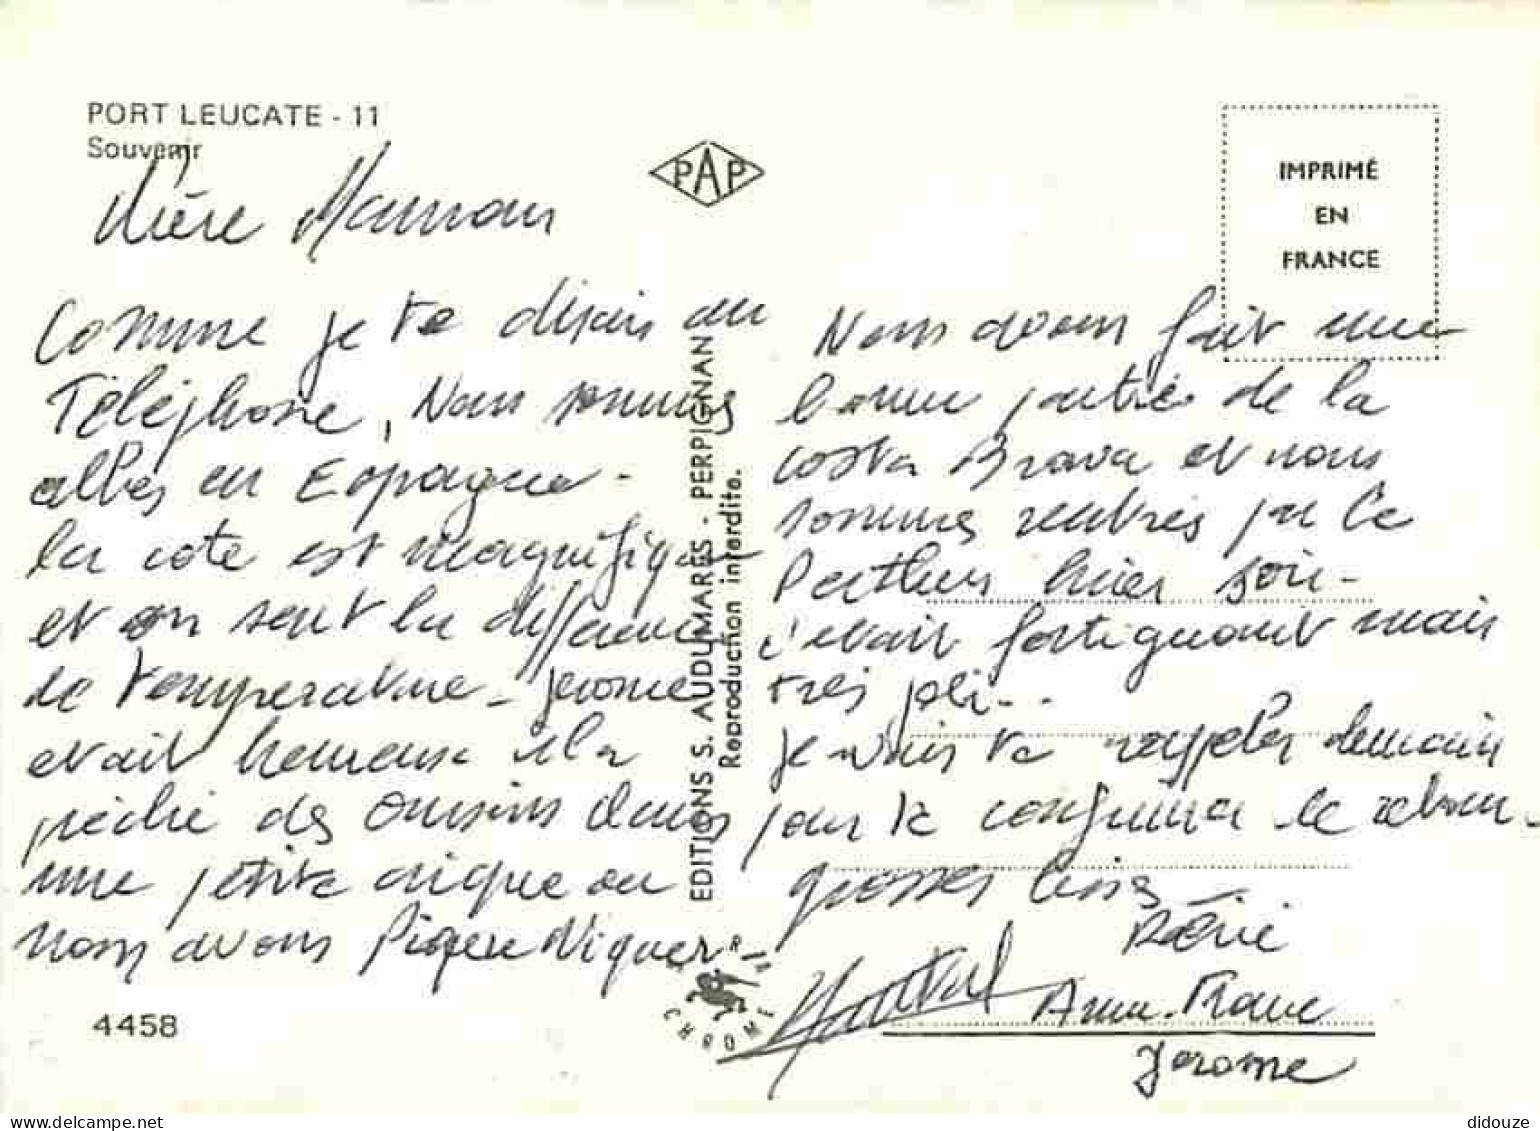 PORT LEUCATE - 11
Souvenir
PAP
IMPRIMÉ
EN
FRANCE
Chère Maman
Comme je te disais au
Téléphone, Nous sommes
allés en Espagne -
la cote est magnifique
et on sent la différence
de temperature - Jerome
etait heureux il a
pêché des oursins dans
une petite crique ou
nous avons Pique Niquer -
4458
EDITIONS S. AUDUMARES - PERPIGNAN
Reproduction interdite.
CHROME
Nous avons fait une
bonne partie de la
costa Brava et nous
sommes rentres par Le
Perthus hier soir -
c'etait fatiguant mais
très joli - - -
Je vais te rappeler demain
pour te confirmer le retour -
grosses bises -
Anne-France
Jerome
https://www.delcampe.net
didouze